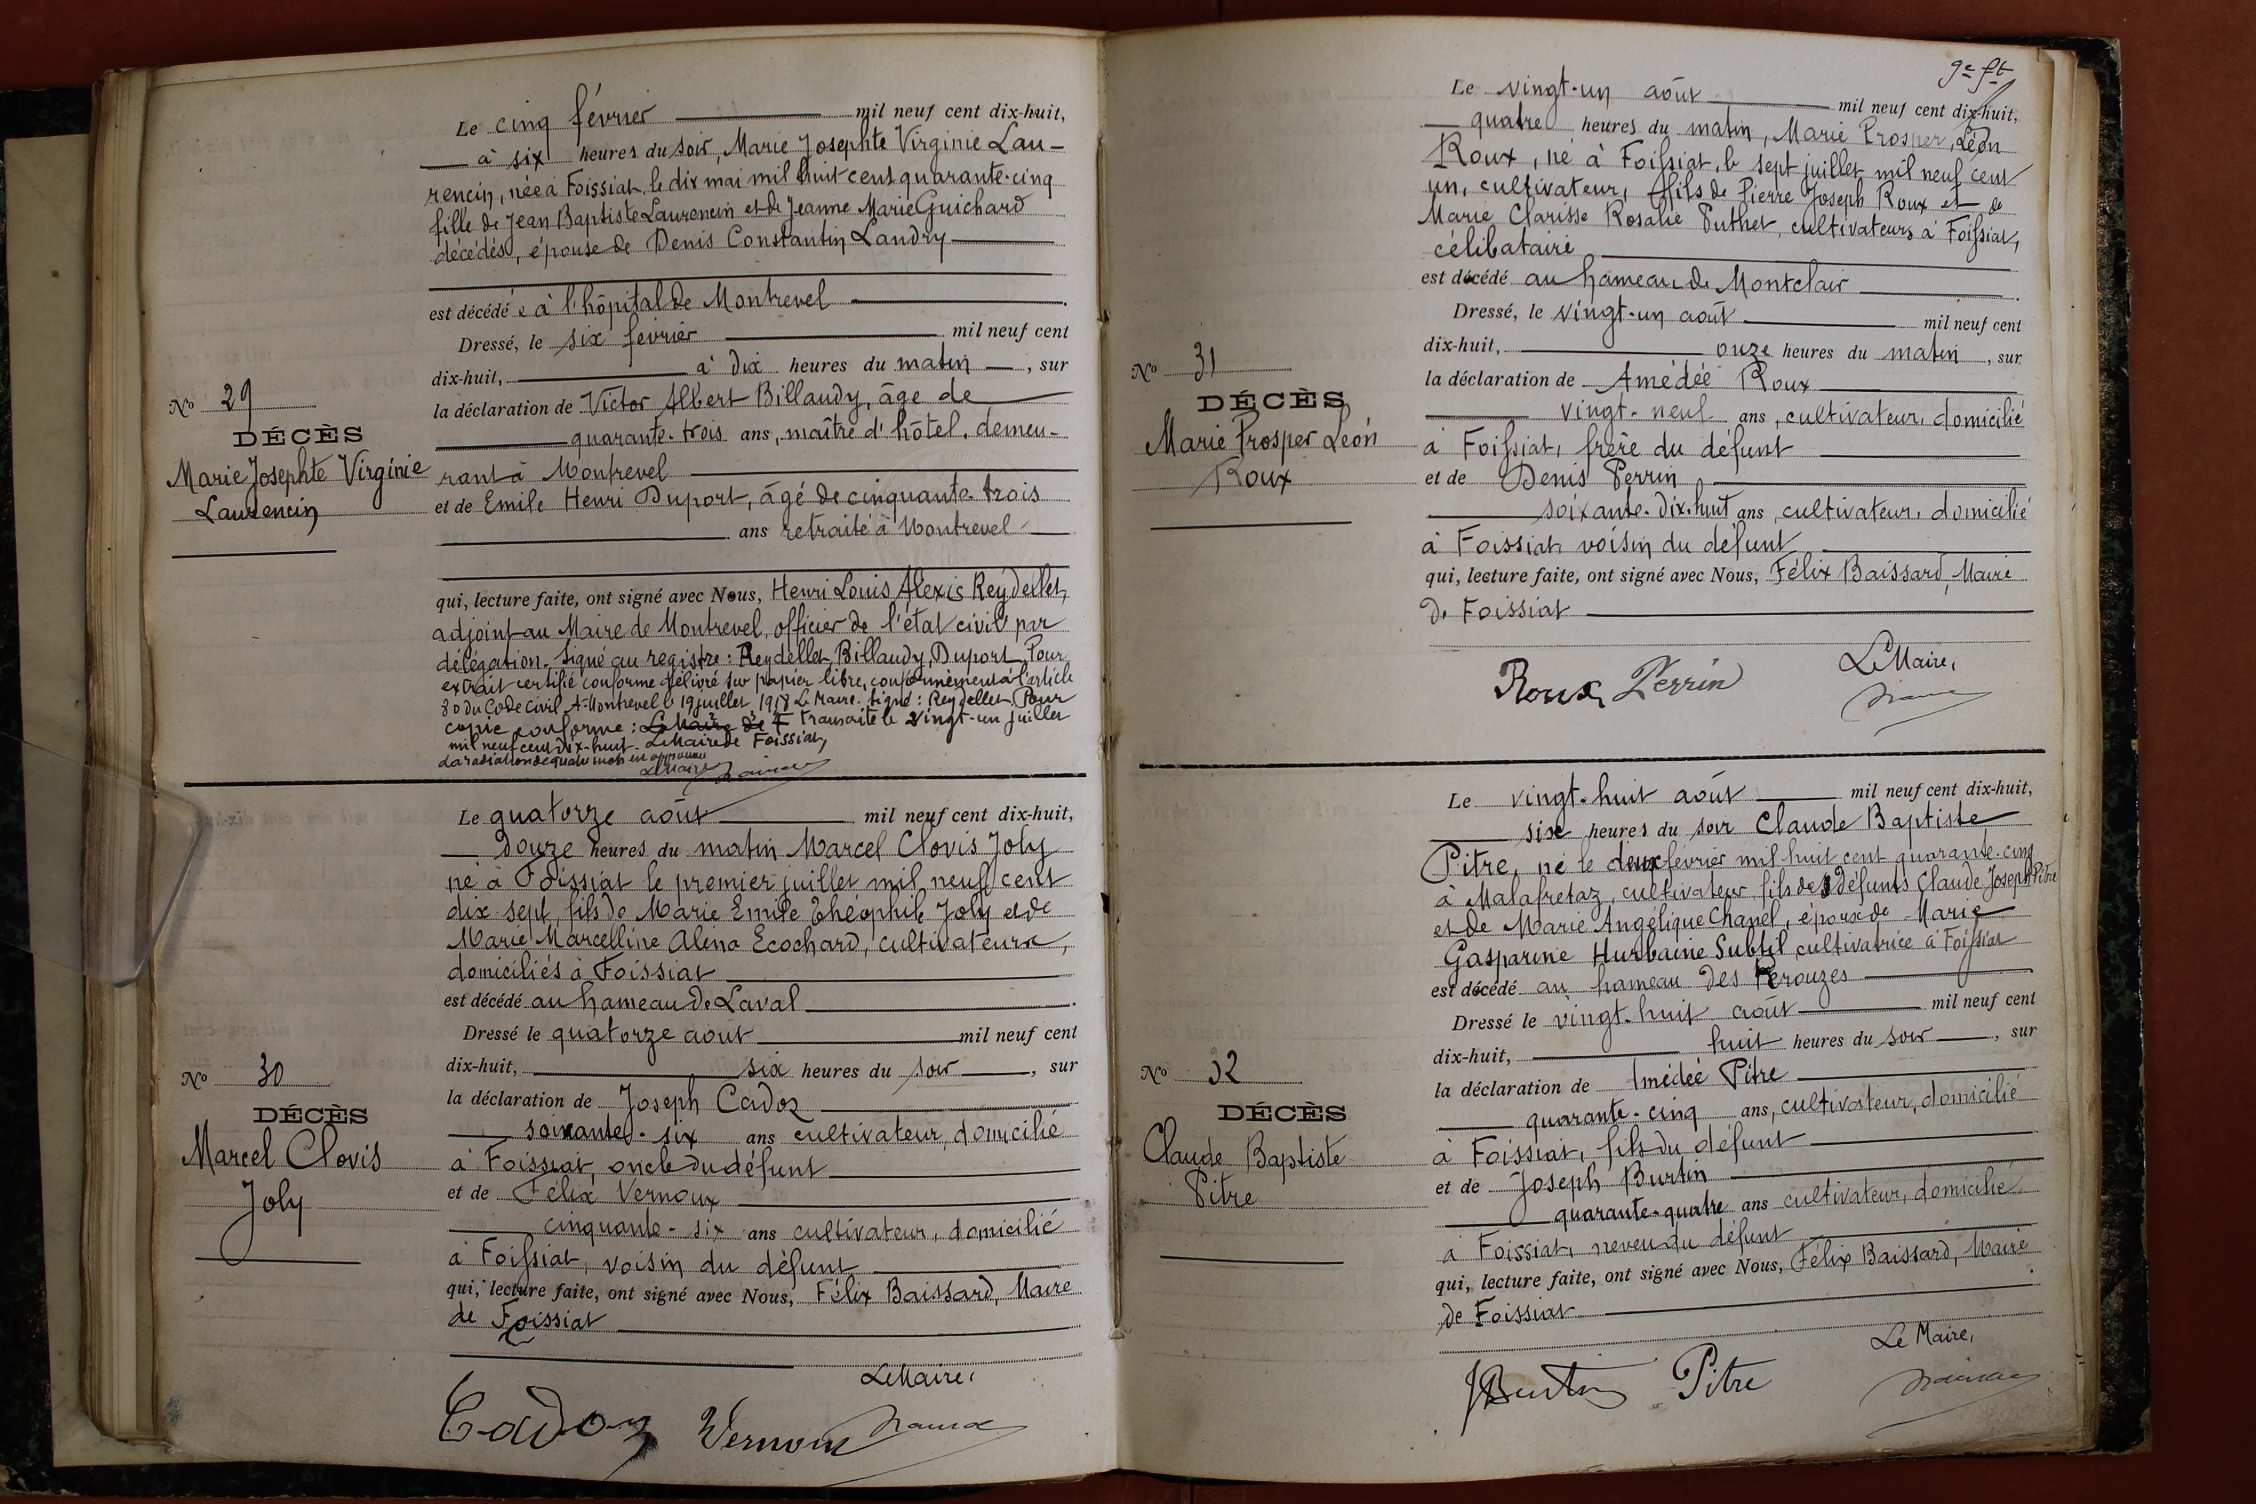 Le cinq février mil neuf cent dix-huit,
à six heures du soir, Marie Josephte Virginie Lau-
rencin, née à Foissiat, le dix mai mil huit cent quarante-cinq
fille de Jean Baptiste Laurencin et de Jeanne Marie Guichard
décédés, épouse de Denis Constantin Landry
est décédé e à l'hôpital de Montrevel
Dressé, le six février mil neuf cent
dix-huit, à dix heures du matin, sur
la déclaration de Victor Albert Billaudy, âgé de
quarante-trois ans, maître d'hôtel, demeu-
rant à Montrevel
et de Emile Henri Duport, âgé de cinquante-trois
ans retraité à Montrevel
qui, lecture faite, ont signé avec Nous, Henri Louis Alexis Reydellet,
adjoint au Maire de Montrevel, officier de l'état civil par
délégation. Signé au registre: Reydellet, Billaudy, Duport. Pour
extrait certifié conforme délivré sur papier libre, conformément à l'article
80 du Code Civil. A Montrevel le 19 juillet 1918 Le Maire. Signé: Reydellet. Pour
copie conforme: Le Maire de F transcrite le vingt-un juillet
mil neuf cent dix-huit. Le Maire de Foissiat,
La radiation de quatre mots est approuvée
Le Maire
No 29
DÉCÈS
Marie Josephte Virginie
Laurencin
Le quatorze août mil neuf cent dix-huit,
douze heures du matin Marcel Clovis Joly
né à Foissiat le premier juillet mil neuf cent
dix-sept, fils de Marie Emile Théophile Joly et de
Marie Marcelline Aléna Ecochard, cultivateurs,
domiciliés à Foissiat
est décédé au hameau de Laval
Dressé le quatorze aout mil neuf cent
dix-huit, six heures du soir, sur
la déclaration de Joseph Cadoz
soixante-six ans cultivateur, domicilié
à Foissiat, oncle du défunt
et de Félix Vernoux
cinquante-six ans cultivateur, domicilié
à Foissiat, voisin du défunt
qui, lecture faite, ont signé avec Nous, Félix Baissard, Maire
de Foissiat
Le Maire,
Cadoz Vernoux
No 30
DÉCÈS
Marcel Clovis
Joly
9e ft
Le vingt-un août mil neuf cent dix-huit,
quatre heures du matin, Marie Prosper, Léon
Roux, né à Foissiat, le sept juillet mil neuf cent
un, cultivateur, fils de Pierre Joseph Roux et de
Marie Clarisse Rosalie Puthet, cultivateurs à Foissiat,
célibataire
est décédé au hameau de Montclair
Dressé, le vingt-un août mil neuf cent
dix-huit, onze heures du matin, sur
la déclaration de Amédée Roux
vingt-neuf ans, cultivateur, domicilié
à Foissiat, frère du défunt
et de Denis Perrin
soixante-dix-huit ans, cultivateur, domicilié
à Foissiat, voisin du défunt
qui, lecture faite, ont signé avec Nous, Félix Baissard, Maire
de Foissiat
Le Maire,
Roux Perrin
No 31
DÉCÈS
Marie Prosper Léon
Roux
Le vingt-huit août mil neuf cent dix-huit,
six heures du soir Claude Baptiste
Pitre, né le deux février mil huit cent quarante-cinq
à Malafretaz, cultivateur, fils des défunts Claude Joseph Pitre
et de Marie Angélique Chanel, époux de Marie
Gasparine Hurbaine Subtil, cultivatrice à Foissiat
est décédé au hameau des Perouzes
Dressé le vingt-huit août mil neuf cent
dix-huit, huit heures du soir, sur
la déclaration de Amédée Pitre
quarante-cinq ans, cultivateur, domicilié
à Foissiat, fils du défunt
et de Joseph Burtin
quarante-quatre ans cultivateur, domicilié
à Foissiat, neveu du défunt
qui, lecture faite, ont signé avec Nous, Félix Baissard, Maire
de Foissiat
Le Maire,
JBurtin Pitre
No 32
DÉCÈS
Claude Baptiste
Pitre